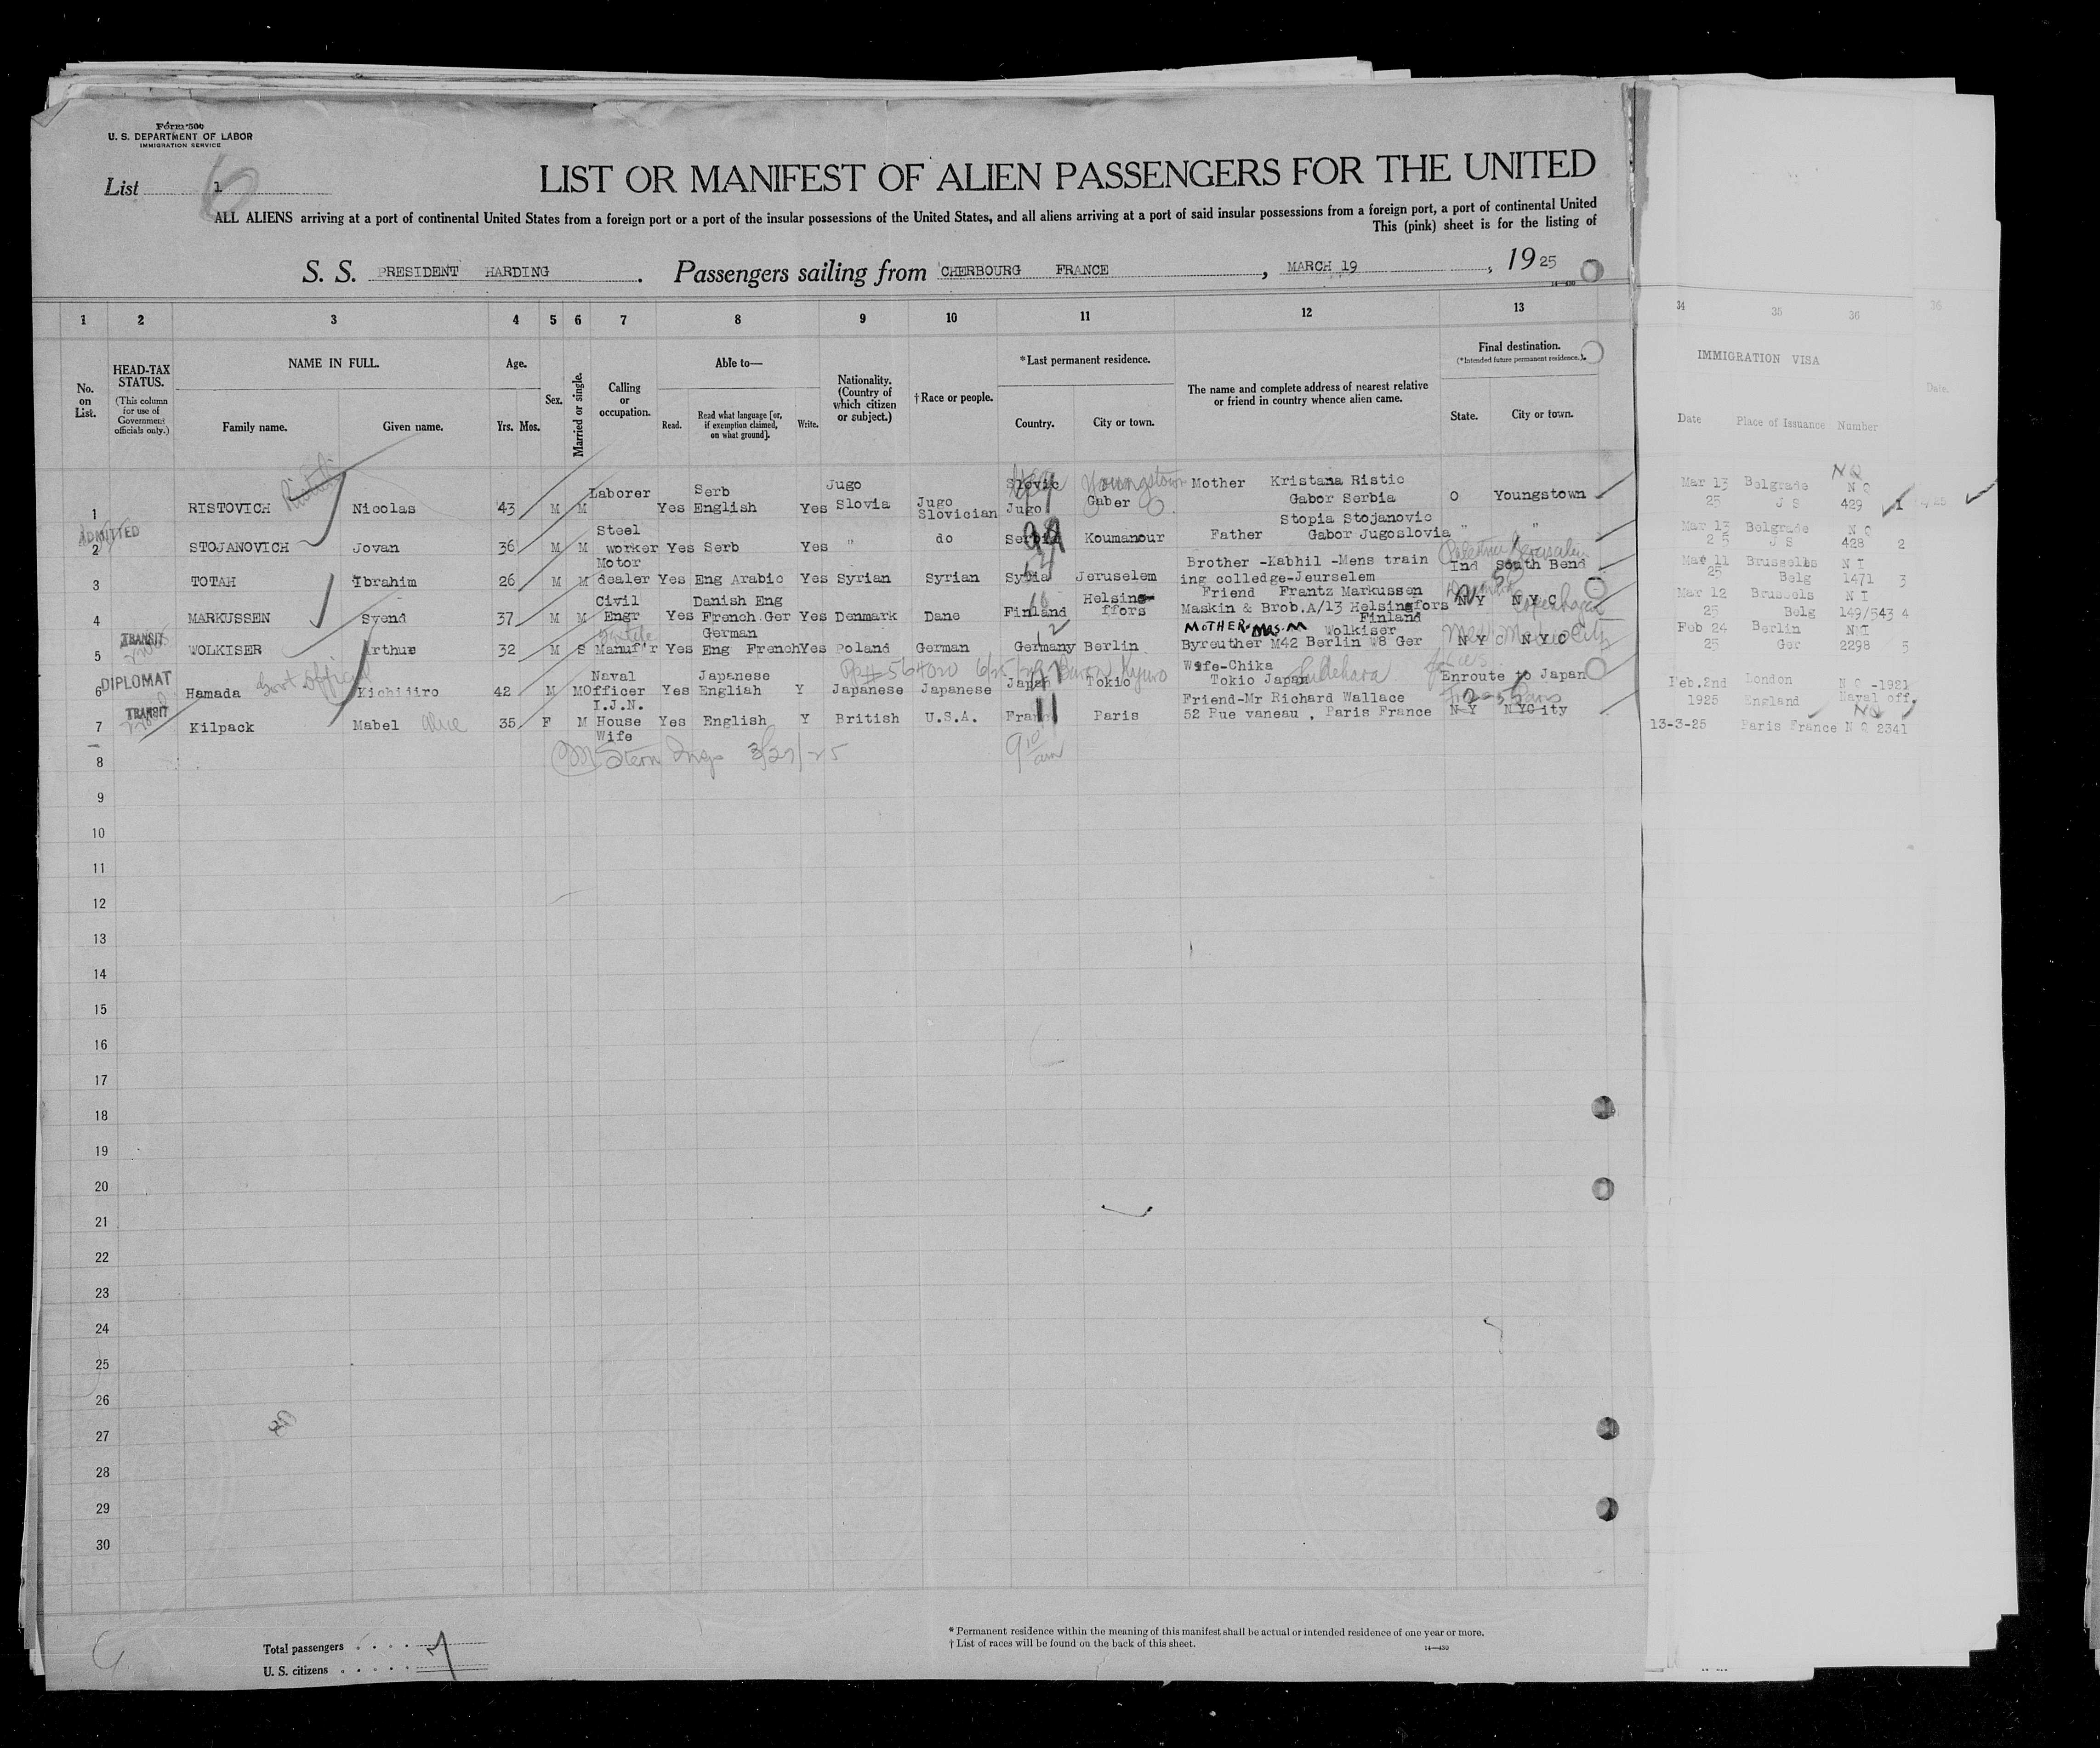 Form 500
U. S. DEPARTMENT OF LABOR
IMMIGRATION SERVICE
List 1 6
LIST OR MANIFEST OF ALIEN PASSENGERS FOR THE UNITED
ALL ALIENS arriving at a port of continental United States from a foreign port or a port of the insular possessions of the United States, and all aliens arriving at a port of said insular possessions from a foreign port, a port of continental United
This (pink) sheet is for the listing of
S. S. PRESIDENT HARDING. Passengers sailing from CHERBOURG FRANCE, MARCH 19, 1925
14—430
1 2 3 4 5 6 7 8 9 10 11 12 13 34 35 36 36
No. on List.
HEAD-TAX STATUS.
(This column for use of Government officials only.)
NAME IN FULL.
Family name. Given name.
Age.
Yrs. Mos.
Sex.
Married or single.
Calling or occupation.
Able to—
Read. Read what language [or, if exemption claimed, on what ground]. Write.
Nationality. (Country of which citizen or subject.)
†Race or people.
*Last permanent residence.
Country. City or town.
The name and complete address of nearest relative or friend in country whence alien came.
Final destination.
(*Intended future permanent residence.)
State. City or town.
IMMIGRATION VISA
Date Place of Issuance Number
Date.
1 RISTOVICH Nicolas 43 M M Laborer Yes Serb English Yes Jugo Slovia Jugo Slovician Slovic Jugo Youngstown O. Gaber Mother Kristana Ristic Gabor Serbia O Youngstown Mar 13 25 Belgrade J S N Q N Q 429 1
ADMITTED
2 STOJANOVICH Jovan 36 M M Steel worker Yes Serb Yes " do Serbia Koumanour Father Stopia Stojanovic Gabor Jugoslovia " " Mar 13 25 Belgrade J S N Q 428 2
3 TOTAH Ibrahim 26 M M Motor dealer Yes Eng Arabic Yes Syrian Syrian Syria Jeruselem Brother -Kabhil -Mens train ing colledge-Jeurselem Ind South Bend Palestine Jerusalem Mar 11 25 Brussells Belg N I 1471 3
4 MARKUSSEN Svend 37 M M Civil Engr Yes Danish Eng French Ger Yes Denmark Dane Finland Helsing- ffors Friend Frantz Markussen Maskin & Brob.A/13 Helsingfors Finland N Y N Y C Denmark Copenhagen Mar 12 25 Brussels Belg N I 149/543 4
TRANSIT
5 WOLKISER Arthur 32 M S Manuf'r Yes German Eng French Yes Poland German Germany Berlin MOTHER-MRS. M Wolkiser Byreuther M42 Berlin W8 Ger N Y N Y C New Mexico City Feb 24 25 Berlin Ger N I 2298 5
DIPLOMAT
6 Hamada Govt Official Kichijiro 42 M M Naval Officer I.J.N. Yes Japanese Engliah Y Japanese Japanese Japan Tokio Wife-Chika Tokio Japan Enroute to Japan Feb.2nd 1925 London England N Q -1921 Naval off.
TRANSIT
7 Kilpack Mabel Alice 35 F M House Wife Yes English Y British U.S.A. France Paris Friend-Mr Richard Wallace 52 Rue vaneau , Paris France N Y N YCity France Paris 13-3-25 Paris France N Q 2341
8 M Stern Insp 3/27/25 9 10 am
9
10
11
12
13
14
15
16
17
18
19
20
21
22
23
24
25
26
27
28
29
30
Total passengers . . . . 7
U. S. citizens . . . . .
* Permanent residence within the meaning of this manifest shall be actual or intended residence of one year or more.
† List of races will be found on the back of this sheet.
14—430